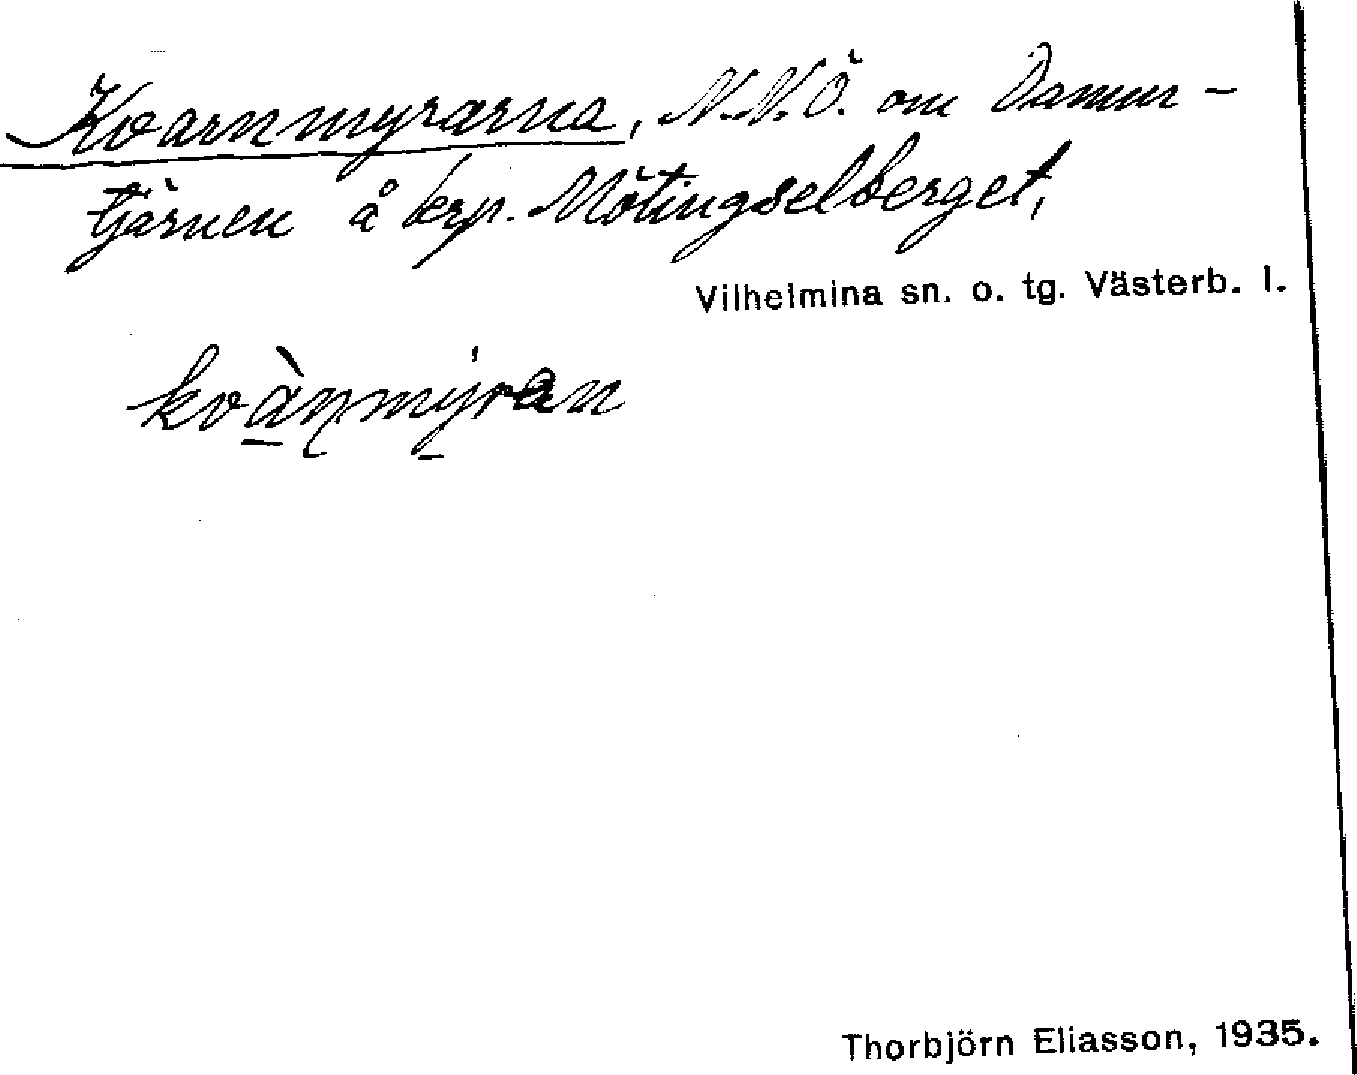 Kvarnmyrarna, N.N.Ö. om Damm-
tjärnen å krp. Mötingselberget,
Vilhelmina sn. o. tg. Västerb. l.
kvànmýran
Thorbjörn Eliasson, 1935.